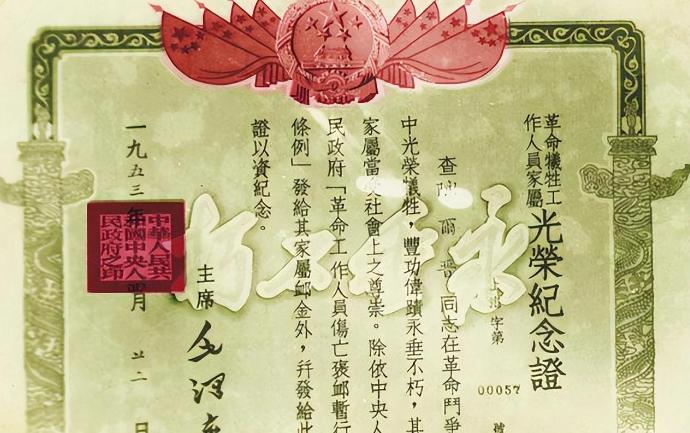 革命犧牲工
作人員家屬
光榮紀念證
字第
00057
號
查陳爾晋同志在革命鬥爭
中光榮犧牲，豐功偉蹟永垂不朽，其
家屬當受社會上之尊崇。除依中央人
民政府「革命工作人員傷亡褒卹暫行
條例」發給其家屬卹金外，并發給此
證以資紀念。
主席
毛澤東
一九五三年四月廿二日
中華人民共
和國中央人
民政府之印